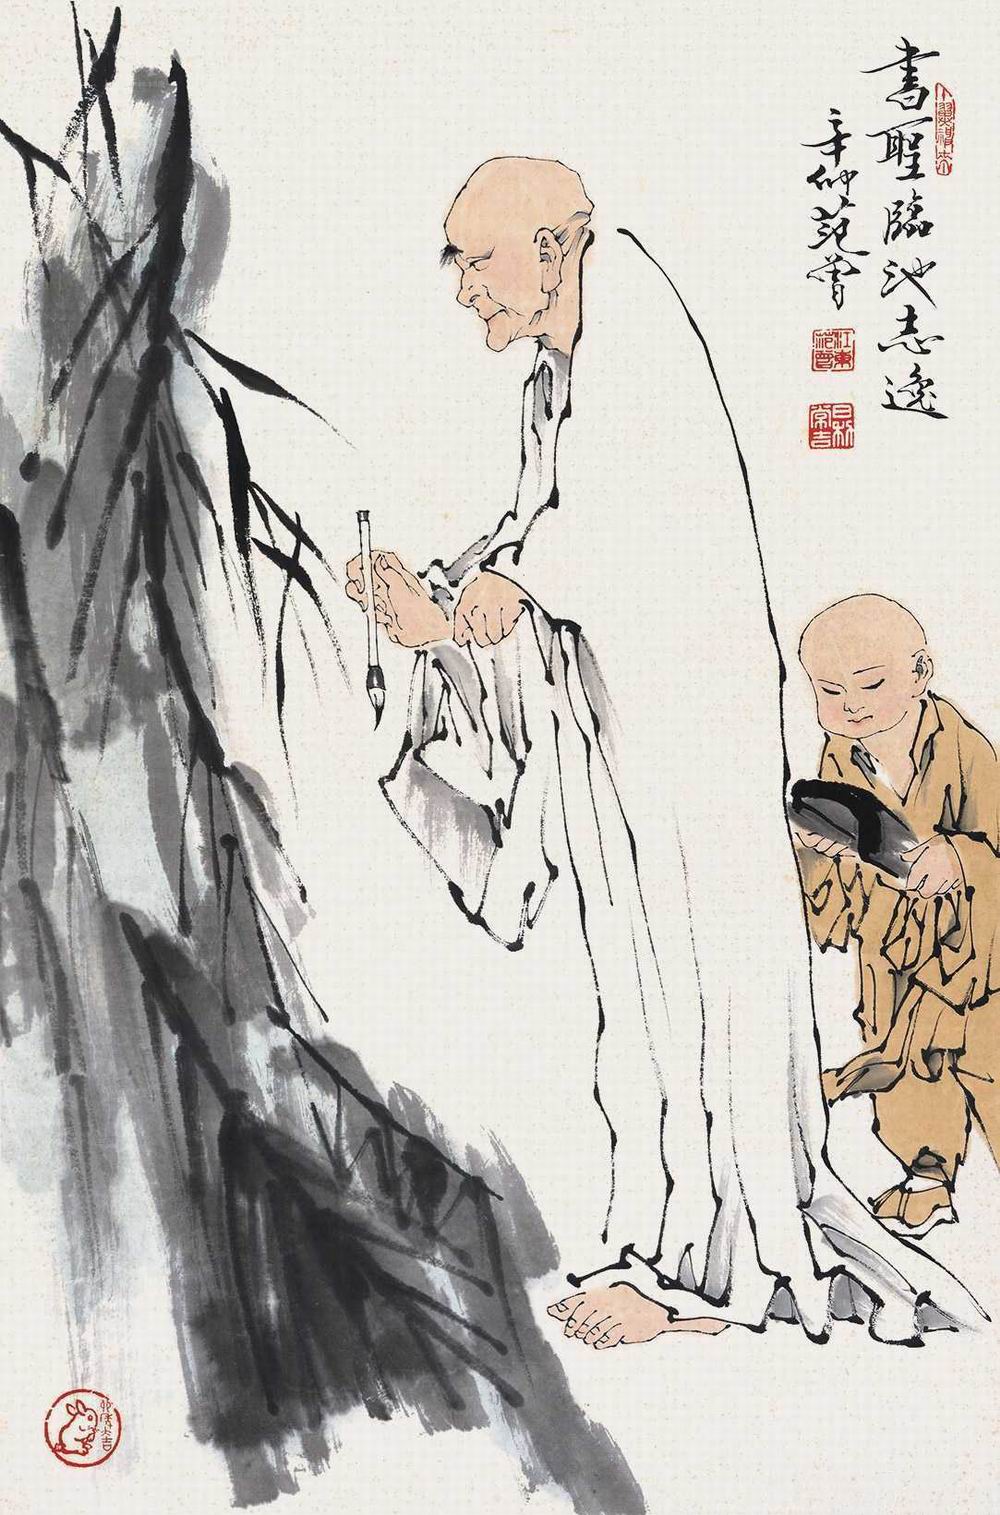 書聖臨池志逸
辛卯范曾
江東范曾
日利常吉